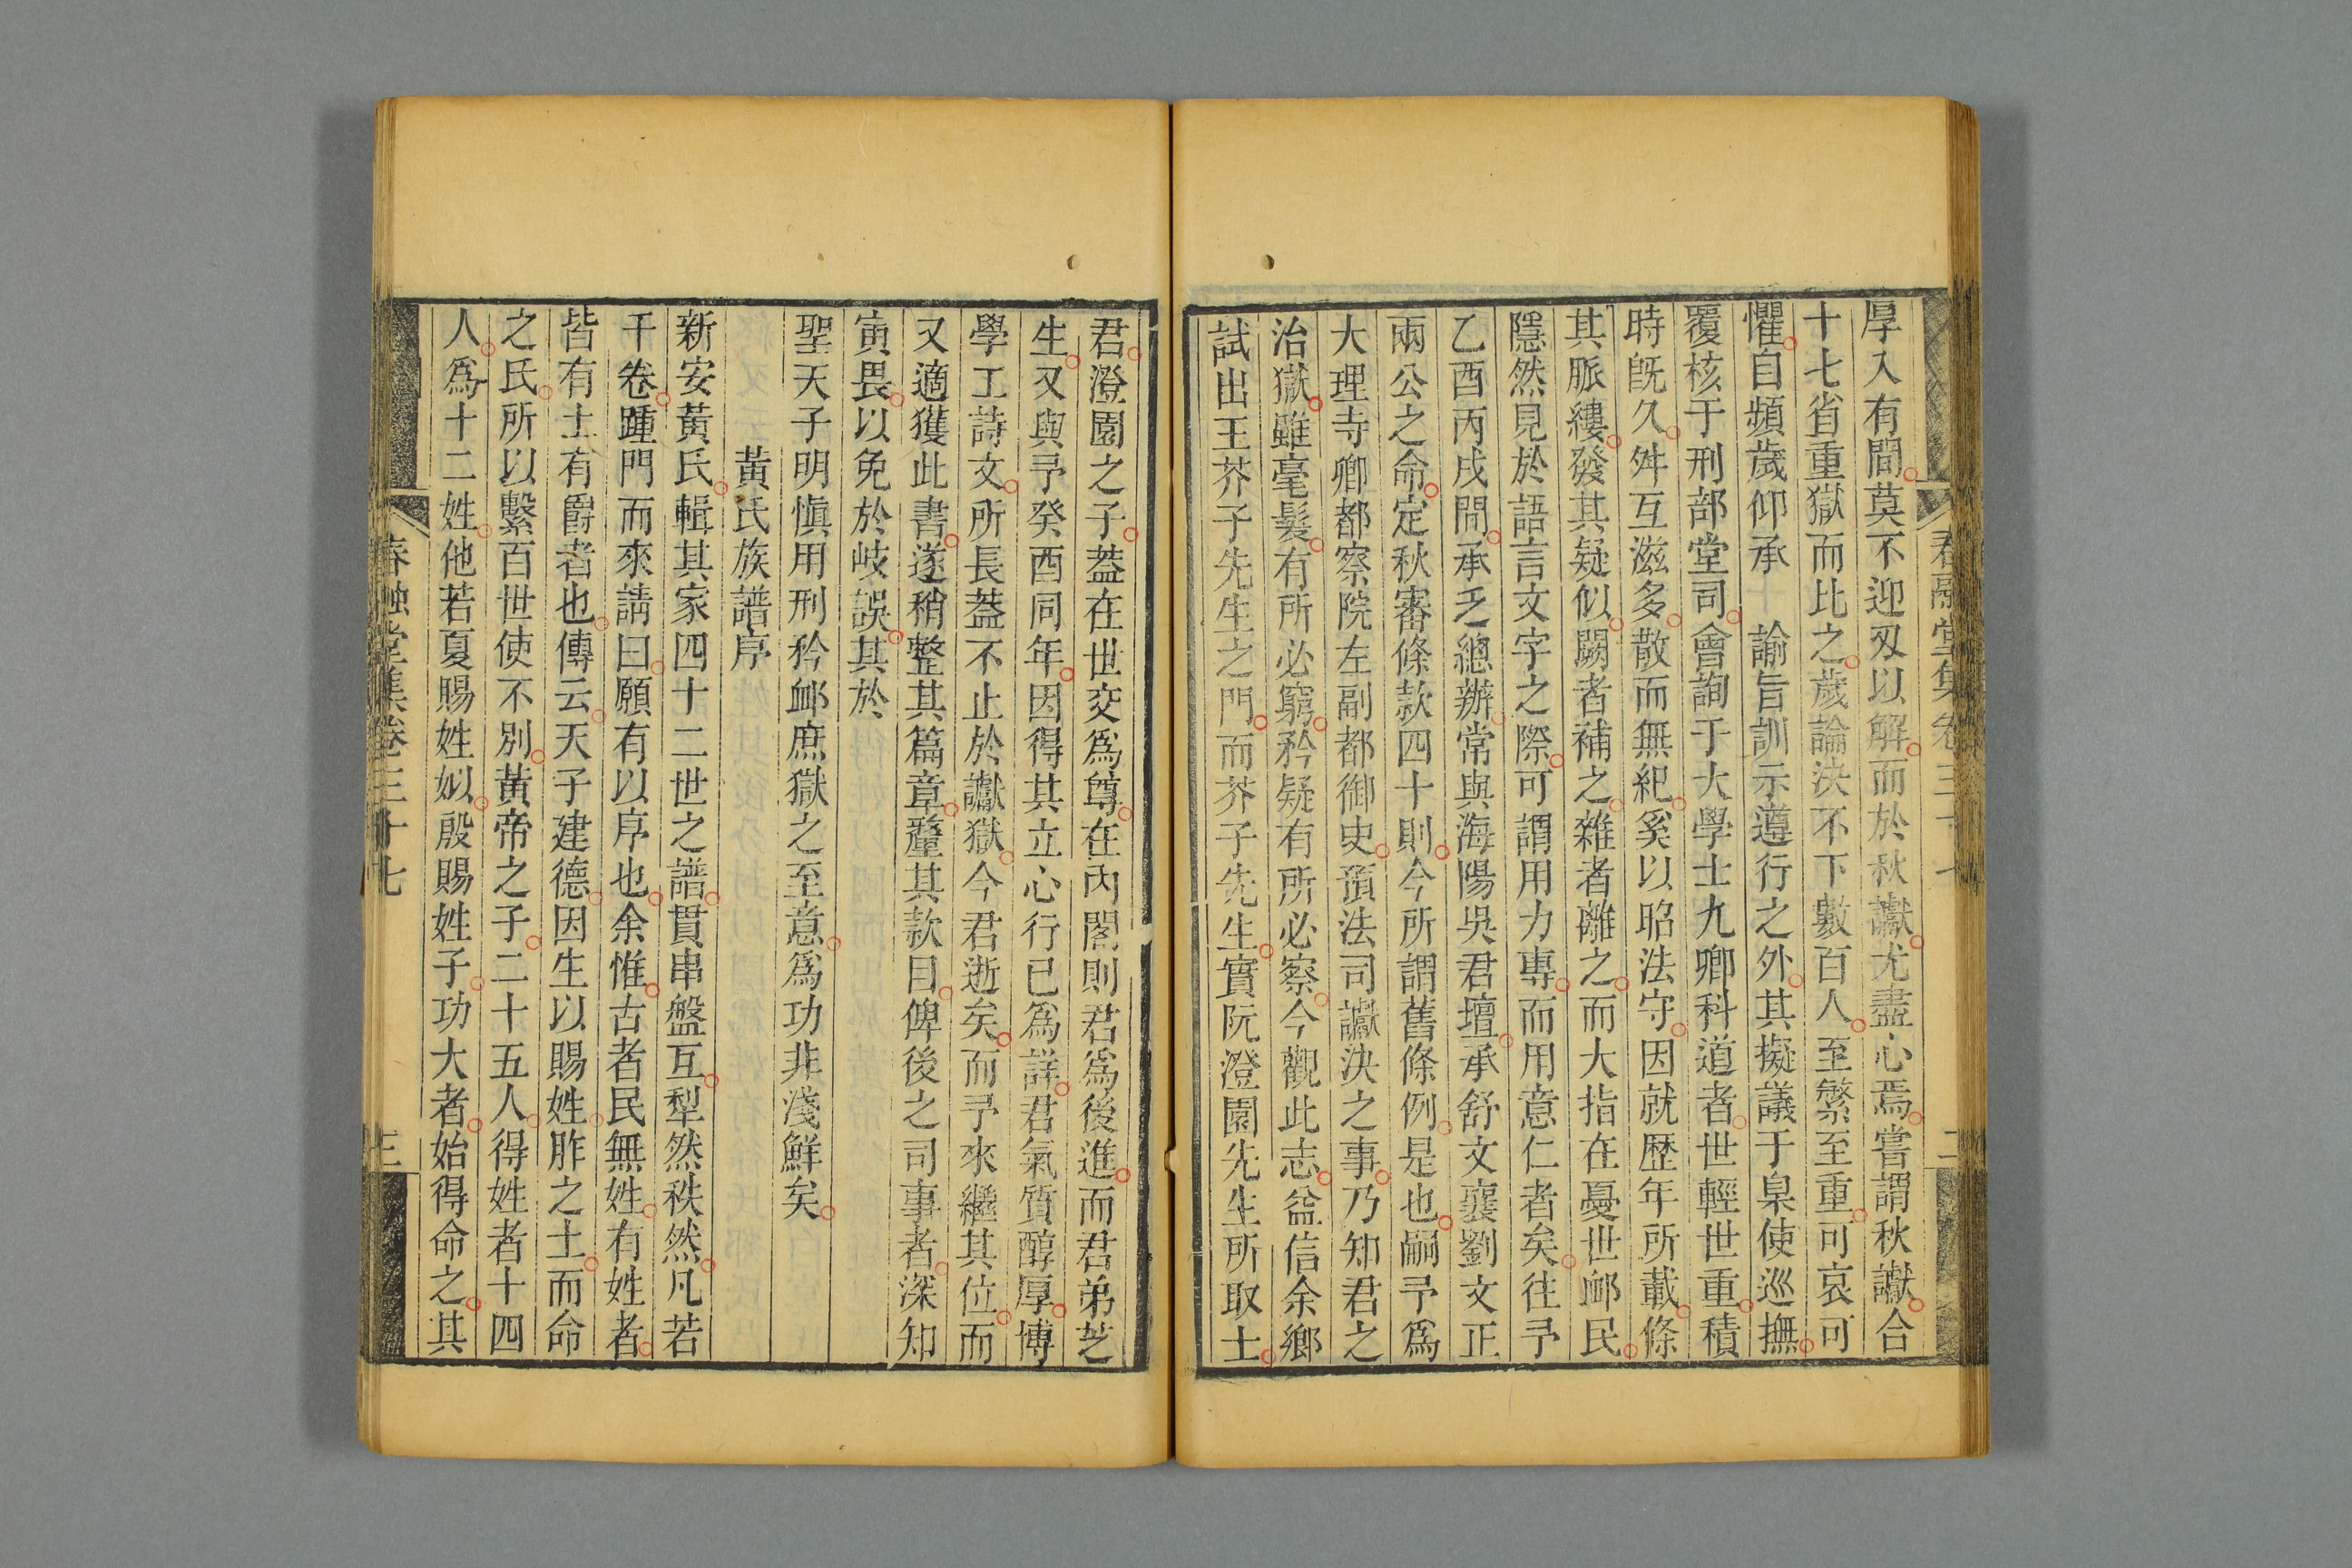 厚入有間莫不迎刃以解而於秋讞尤盡心焉嘗謂秋讞合
十七省重獄而比之歲論決不下數百人至繁至重可哀可
懼自頻歲仰承 諭旨訓示遵行之外其擬議于臬使巡撫
覆核于刑部堂司會詢于大學士九卿科道者世輕世重積
時旣久舛互滋多散而無紀奚以昭法守因就歷年所載條
其脈縷發其疑似闕者補之雜者離之而大指在憂世邺民
隱然見於語言文字之際可謂用力專而用意仁者矣往予
乙酉丙戌間承乏總辦常與海陽吳君壇承舒文襄劉文正
兩公之命定秋審條款四十則今所謂舊條例是也嗣予爲
大理寺卿都察院左副都御史預法司讞決之事乃知君之
治獄雖毫髮有所必窮矜疑有所必察今觀此志益信余鄉
試出王芥子先生之門而芥子先生實阮澄園先生所取士
君澄園之子葢在世交爲尊在內閣則君爲後進而君弟芝
生又與予癸酉同年因得其立心行已爲詳君氣質醇厚博
學工詩文所長葢不止於讞獄今君逝矣而予來繼其位而
又適獲此書遂稍整其篇章釐其款目俾後之司事者深知
寅畏以免於岐誤其於
聖天子明愼用刑矜邺庶獄之至意爲功非淺鮮矣
黃氏族譜序
新安黃氏輯其家四十二世之譜貫串盤互犁然秩然凡若
干卷踵門而來請曰願有以序也余惟古者民無姓有姓者
皆有土有爵者也傳云天子建德因生以賜姓胙之土而命
之氏所以繫百世使不別黃帝之子二十五人得姓者十四
人爲十二姓他若夏賜姓姒殷賜姓子功大者始得命之其
春融堂集卷三十七
三